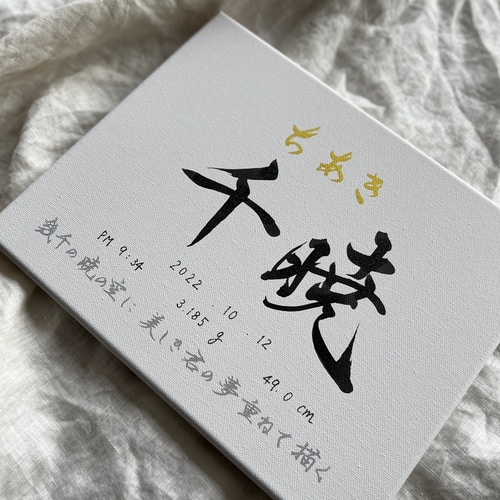 ちあき
千暁
2022.10.12
PM 9:34 3.185g 49.0cm
幾千の暁の空に美しき君の夢重ねて描く